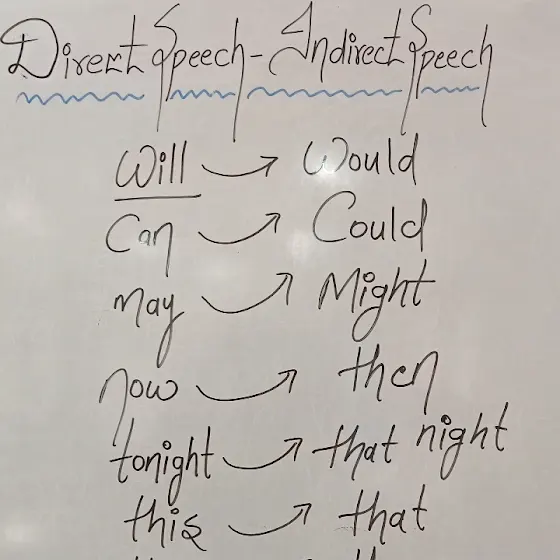 Direct Speech - Indirect Speech
Will → Would
Can → Could
May → Might
now → then
tonight → that night
this → that